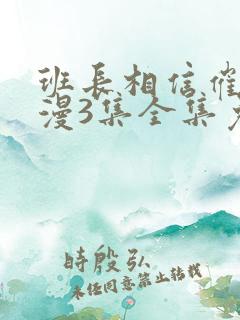 班長相信催
漫3集全集
時殷弘
未任同意禁止轉載